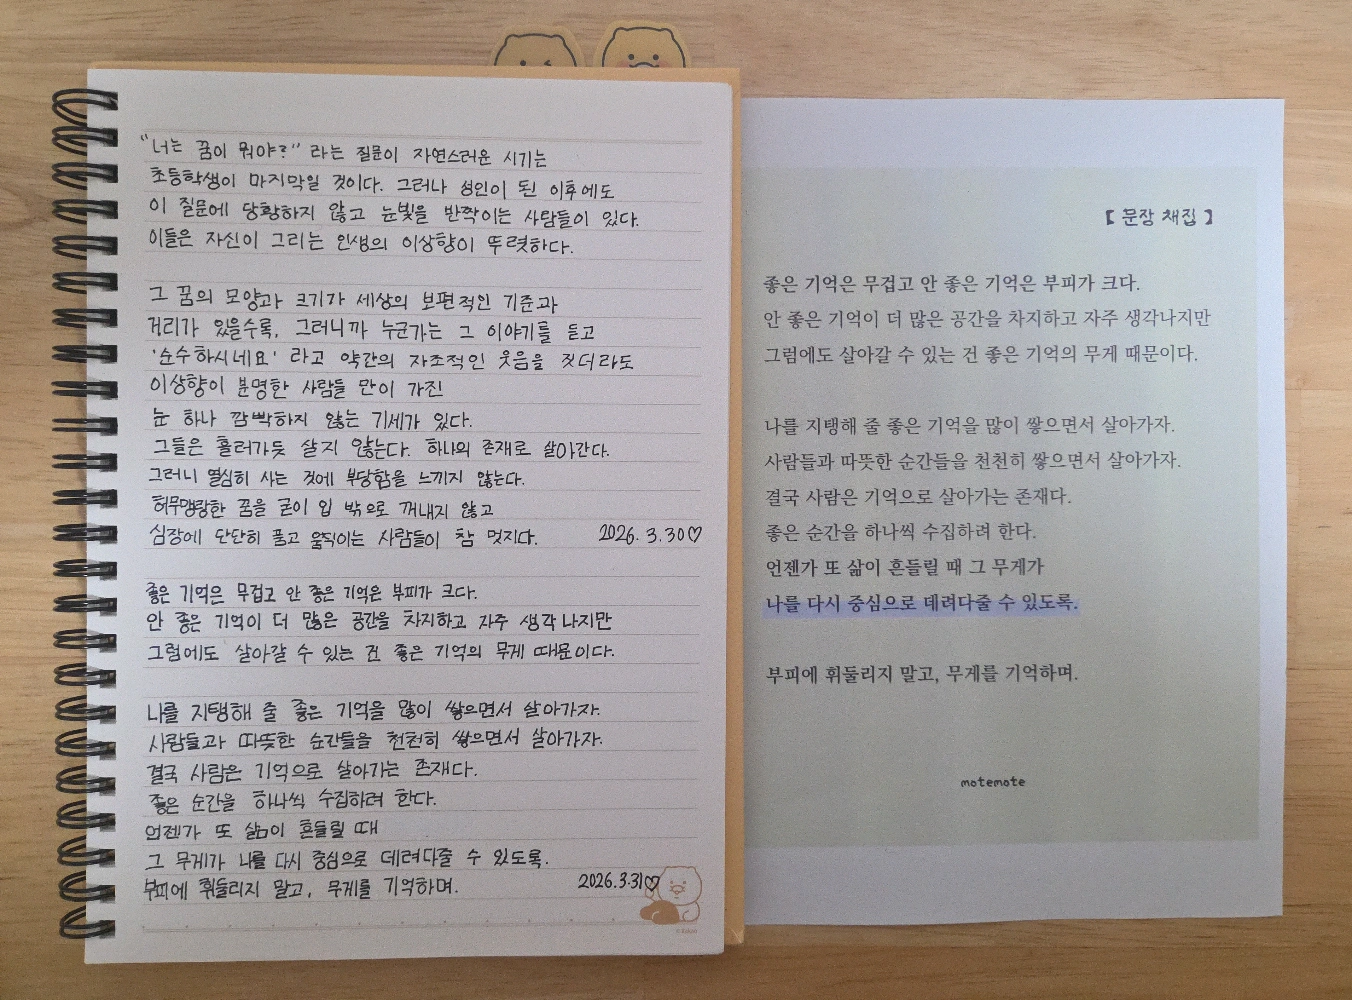 “너는 꿈이 뭐야?” 라는 질문이 자연스러운 시기는
초등학생이 마지막일 것이다. 그러나 성인이 된 이후에도
이 질문에 당황하지 않고 눈빛을 반짝이는 사람들이 있다.
이들은 자신이 그리는 인생의 이상향이 뚜렷하다.
그 꿈의 모양과 크기가 세상의 보편적인 기준과
거리가 있을수록, 그러니까 누군가는 그 이야기를 듣고
'순수하시네요' 라고 약간의 자조적인 웃음을 짓더라도
이상향이 분명한 사람들 만이 가진
눈 하나 깜빡하지 않는 기세가 있다.
그들은 흘러가듯 살지 않는다. 하나의 존재로 살아간다.
그러니 열심히 사는 것에 부당함을 느끼지 않는다.
허무맹랑한 꿈을 굳이 입 밖으로 꺼내지 않고
심장에 단단히 품고 움직이는 사람들이 참 멋지다. 2026. 3. 30♡
좋은 기억은 무겁고 안 좋은 기억은 부피가 크다.
안 좋은 기억이 더 많은 공간을 차지하고 자주 생각나지만
그럼에도 살아갈 수 있는 건 좋은 기억의 무게 때문이다.
나를 지탱해 줄 좋은 기억을 많이 쌓으면서 살아가자.
사람들과 따뜻한 순간들을 천천히 쌓으면서 살아가자.
결국 사람은 기억으로 살아가는 존재다.
좋은 순간을 하나씩 수집하려 한다.
언젠가 또 삶이 흔들릴 때
그 무게가 나를 다시 중심으로 데려다줄 수 있도록.
부피에 휘둘리지 말고, 무게를 기억하며. 2026.3.31♡
【 문장 채집 】
좋은 기억은 무겁고 안 좋은 기억은 부피가 크다.
안 좋은 기억이 더 많은 공간을 차지하고 자주 생각나지만
그럼에도 살아갈 수 있는 건 좋은 기억의 무게 때문이다.
나를 지탱해 줄 좋은 기억을 많이 쌓으면서 살아가자.
사람들과 따뜻한 순간들을 천천히 쌓으면서 살아가자.
결국 사람은 기억으로 살아가는 존재다.
좋은 순간을 하나씩 수집하려 한다.
언젠가 또 삶이 흔들릴 때 그 무게가
나를 다시 중심으로 데려다줄 수 있도록.
부피에 휘둘리지 말고, 무게를 기억하며.
motemote